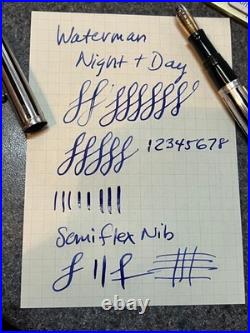 Waterman
Night + Day
12345678
Semiflex Nib